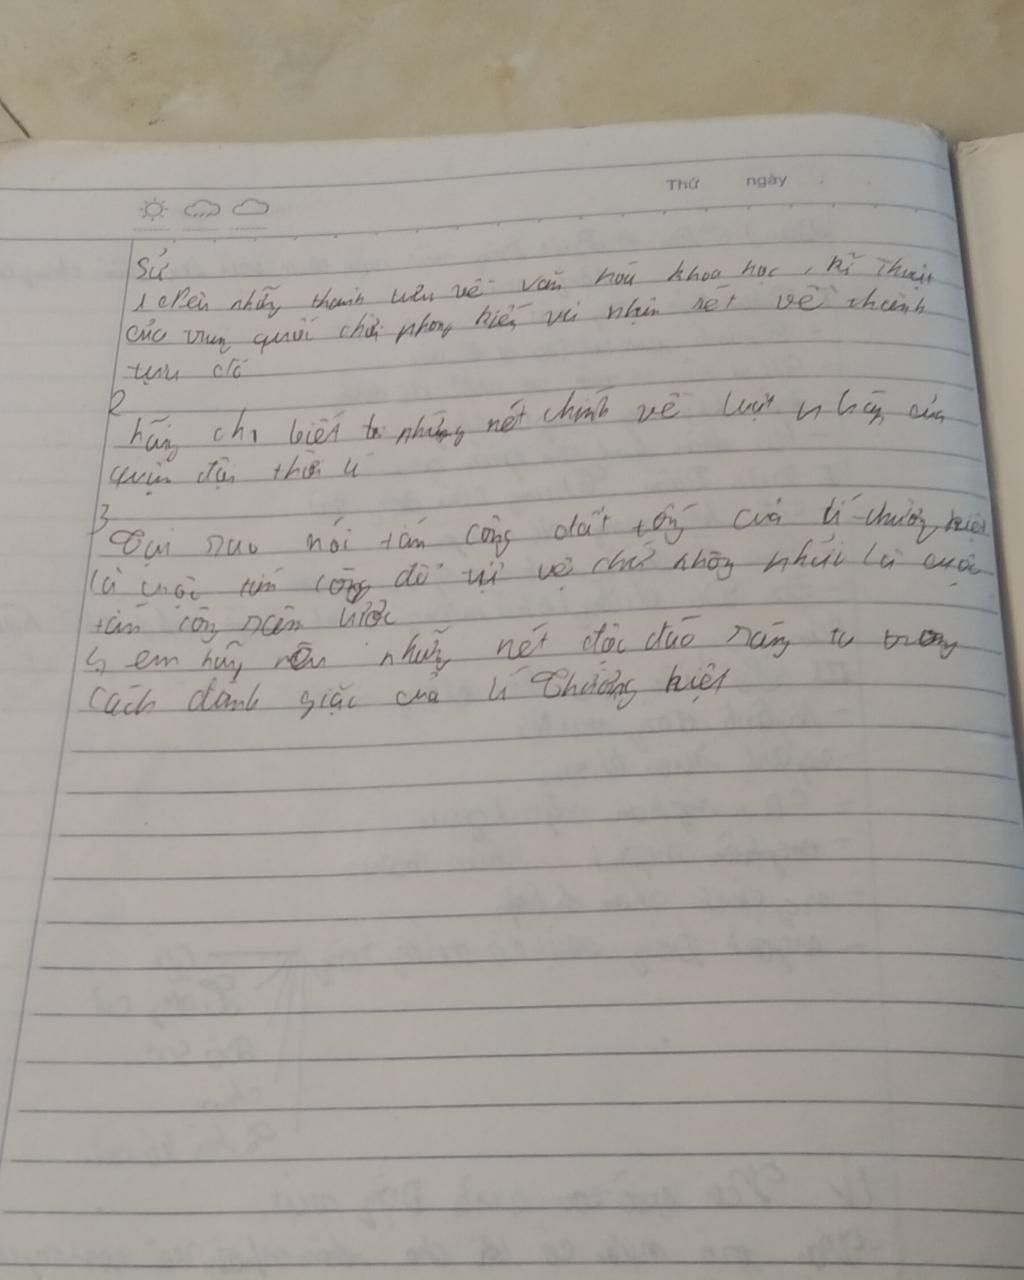 Thứ ngày
Sử
1 nhữg thành tựu về văn hoá khoa học, kĩ thuật
của trung quốc thời phong kiến và nhận xét về thành
tựu đó
2
hãy cho biết những nét chính về luật pháp của
quân đội thời lí
3
Tại sao nói tấn công đất tống của lí thường kiệt
là cuộc tấn công để tự vệ chứ không phải là cuộc
tấn công xâm lược
4 em hãy nêu những nét độc đáo sáng tạo trong
cách đánh giặc của lí Thường kiệt